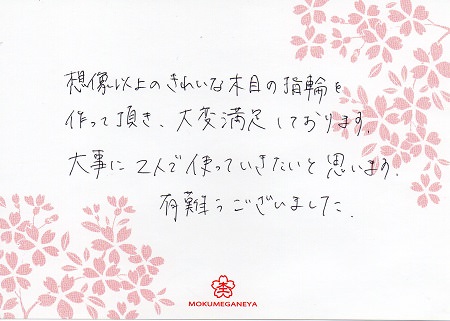 想像以上のきれいな木目の指輪を
作って頂き、大変満足しております。
大事に2人で使っていきたいと思います。
有難うございました。
MOKUMEGANEYA